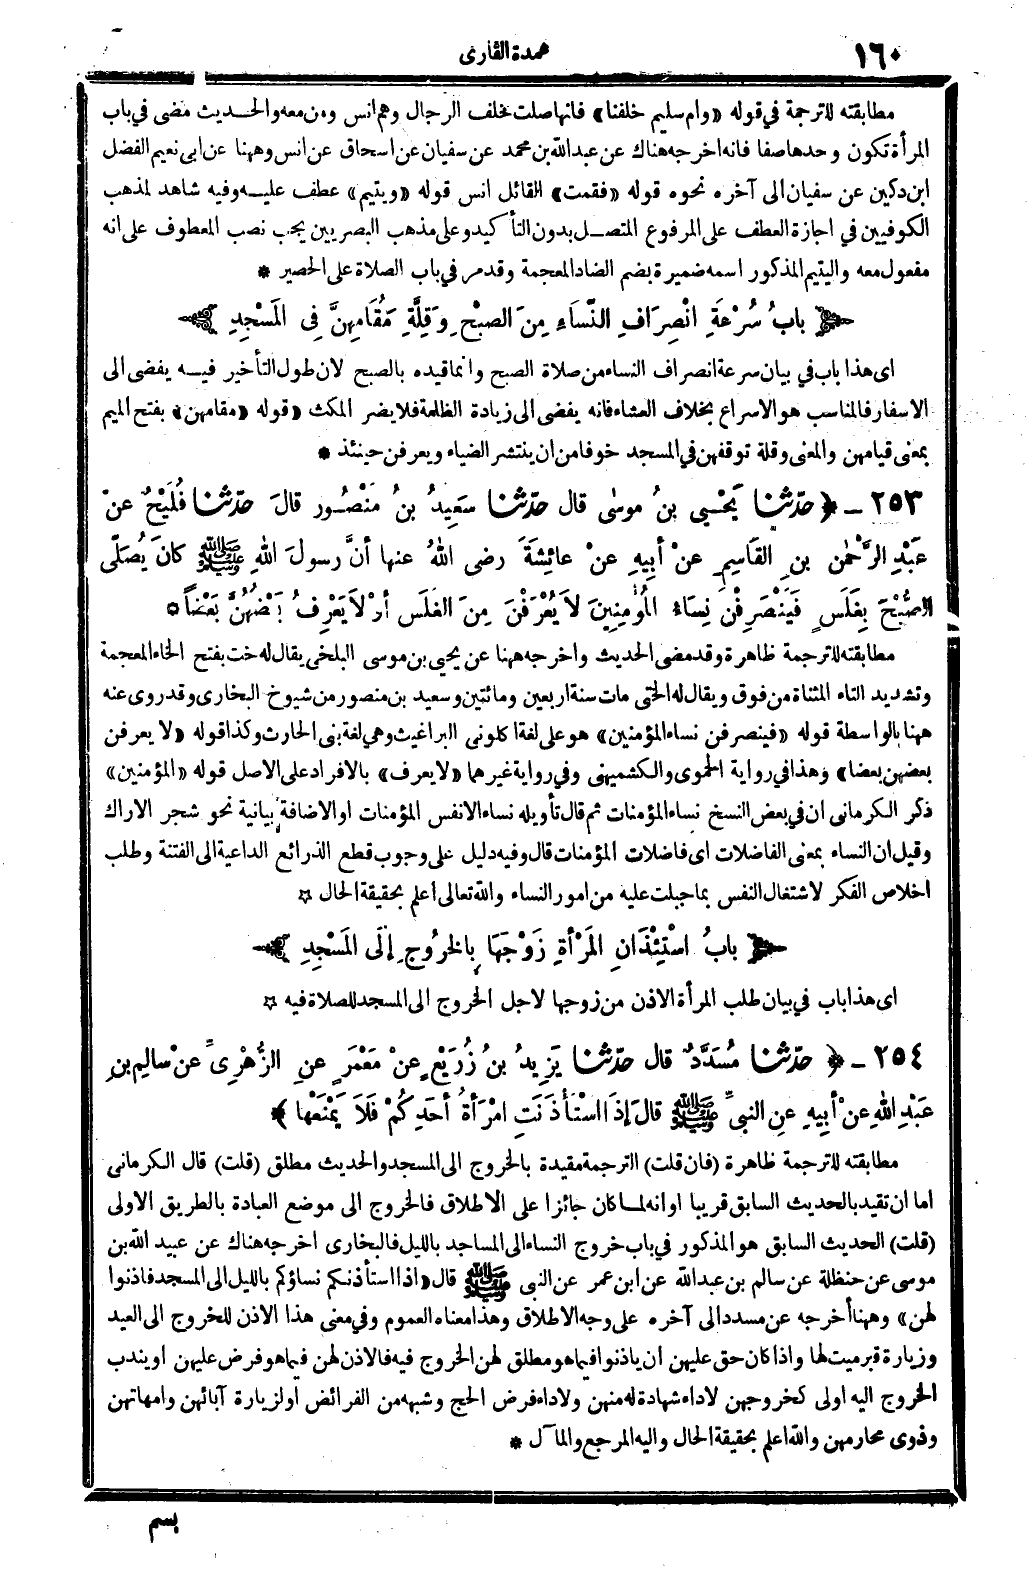 ١٦٠
عمدة القارى
مطابقته للترجمة في قوله «وام سليم خلفنا» فانها صلت خلف الرجال وهم انس ومن معه والحديث مضى في باب
المرأة تكون وحدها صفا فانه اخرجه هناك عن عبد الله بن محمد عن سفيان عن اسحاق عن انس وههنا عن ابى نعيم الفضل
ابن دكين عن سفيان الى آخره نحوه قوله «فقمت» القائل انس قوله «ويتيم» عطف عليه وفيه شاهد لمذهب
الكوفيين في اجازة العطف على المرفوع المتصل بدون التأكيد وعلى مذهب البصريين يجب نصب المعطوف على انه
مفعول معه واليتيم المذكور اسمه ضميرة بضم الضاد المعجمة وقد مر في باب الصلاة على الحصير *
﴿ بابُ سُرْعَةِ انْصِرَافِ النِّسَاءِ مِنَ الصبْحِ وَقِلَّةِ مَقَامِهِنَّ فِى المَسْجِدِ ﴾
اى هذا باب في بيان سرعة انصراف النساء من صلاة الصبح وانما قيده بالصبح لان طول التأخير فيه يفضى الى
الاسفار فالمناسب هو الاسراع بخلاف العشاء فانه يفضى الى زيادة الظلمة فلا يضر المكث «قوله «مقامهن» بفتح الميم
بمعنى قيامهن والمعنى وقلة توقفهن في المسجد خوفا من ان ينتشر الضياء ويعرفن حينئذ *
٢٥٣ ـ ﴿ حدّثنا يَحْيى بنُ موسٰى قال حدّثنا سَعِيدُ بنُ مَنْصُور قالَ حدّثنا فُلَيْحٌ عنْ
عَبْدِ الرَّحْمٰن بنِ القَاسِمِ عنْ أبِيهِ عنْ عائِشَةَ رضى اللهُ عنها أنَّ رسولَ اللهِ ﷺ كانَ يُصَلِّى
الصُّبْحَ بِغَلَسٍ فَيَنْصَرِفْنَ نِساءُ المُؤْمِنِينَ لاَ يُعْرَفْنَ مِنَ الغَلَسِ أوْ لاَ يَعْرِفُ بَعْضُهُنَّ بَعْضَاً ۞
مطابقته للترجمة ظاهرة وقد مضى الحديث واخرجه ههنا عن يحيى بن موسى البلخى يقال له خت بفتح الخاء المعجمة
وتشديد التاء المثناة من فوق ويقال له الختى مات سنة اربعين ومائتين وسعيد بن منصور من شيوخ البخارى وقد روى عنه
ههنا بالواسطة قوله «فينصرفن نساء المؤمنين» هو على لغة اكلونى البراغيث وهى لغة بنى الحارث وكذا قوله «لا يعرفن
بعضهن بعضا» وهذا في رواية الحموى والكشميهنى وفي رواية غيرهما «لا يعرف» بالافراد على الاصل قوله «المؤمنين»
ذكر الكرمانى ان في بعض النسخ نساء المؤمنات ثم قال تأويله نساء الانفس المؤمنات او الاضافة بيانية نحو شجر الاراك
وقيل ان النساء بمعنى الفاضلات اى فاضلات المؤمنات قال وفيه دليل على وجوب قطع الذرائع الداعية الى الفتنة وطلب
اخلاص الفكر لاشتغال النفس بما جبلت عليه من امور النساء والله تعالى اعلم بحقيقة الحال ☆
﴿ بابُ اسْتِئْذَانِ المَرْأةِ زَوْجَهَا بِالخُرُوجِ إلَى المَسْجِدِ ﴾
اى هذا باب في بيان طلب المرأة الاذن من زوجها لاجل الخروج الى المسجد للصلاة فيه ☆
٢٥٤ ـ ﴿ حدّثنا مُسَدَّدٌ قال حدّثنا يَزِيدُ بنُ زُرَيْعٍ عنْ مَعْمَرٍ عنِ الزُّهْرِىِّ عنْ سالِمِ بنِ
عَبْدِ اللهِ عنْ أبِيهِ عنِ النبىِّ ﷺ قالَ إذَا اسْتَأْذَنَتِ امْرَأةُ أحَدِكُمْ فَلاَ يَمْنَعْهَا ﴾
مطابقته للترجمة ظاهرة (فان قلت) الترجمة مقيدة بالخروج الى المسجد والحديث مطلق (قلت) قال الكرمانى
اما ان تقيد بالحديث السابق قريبا او انه لما كان جائزا على الاطلاق فالخروج الى موضع العبادة بالطريق الاولى
(قلت) الحديث السابق هو المذكور في باب خروج النساء الى المساجد بالليل فالبخارى اخرجه هناك عن عبيد الله بن
موسى عن حنظلة عن سالم بن عبد الله عن ابن عمر عن النبى ﷺ قال «اذا استأذنكم نساؤكم بالليل الى المسجد فاذنوا
لهن» وههنا أخرجه عن مسدد الى آخره على وجه الاطلاق وهذا معناه العموم وفي معنى هذا الاذن للخروج الى العيد
وزيارة قبر ميت لها واذا كان حق عليهن ان ياذنوا فيما هو مطلق لهن الخروج فيه فالاذن لهن فيما هو فرض عليهن او يندب
الخروج اليه اولى كخروجهن لاداء شهادة له منهن ولاداء فرض الحج وشبهه من الفرائض او لزيارة آبائهن وامهاتهن
وذوى محارمهن والله اعلم بحقيقة الحال واليه المرجع والمآل *
بسم